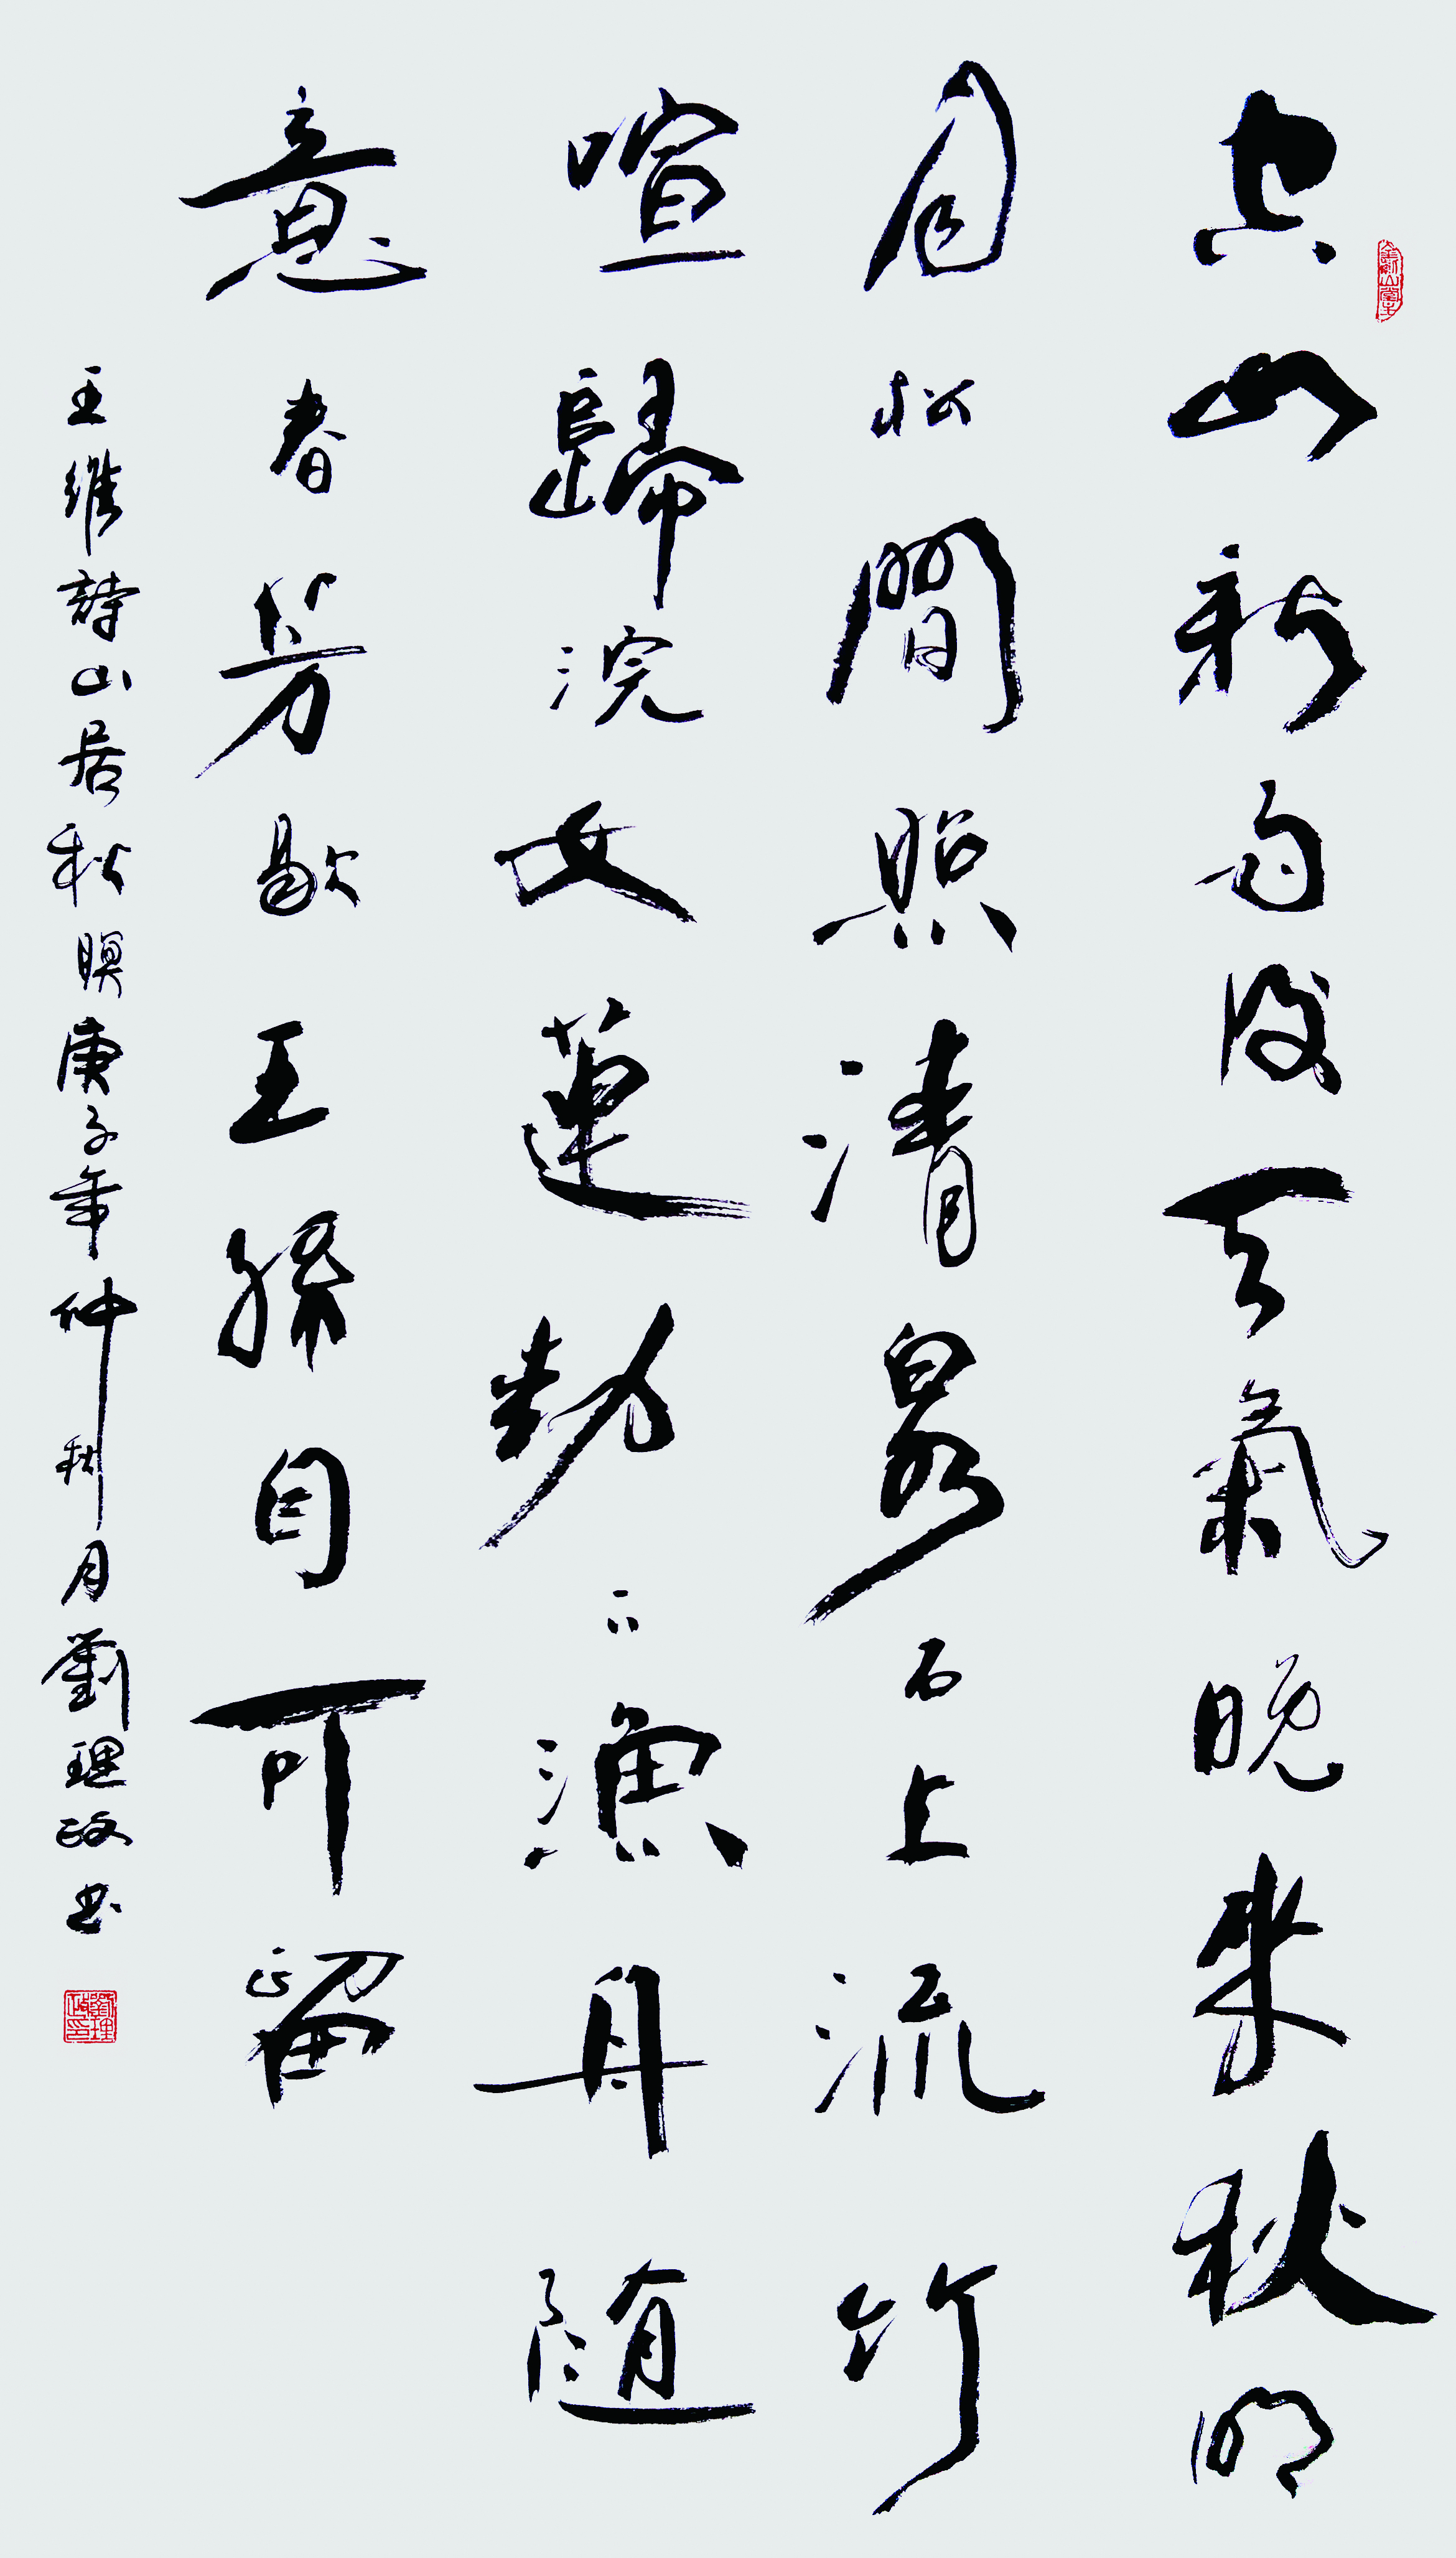 空山新雨後天氣晚來秋明
月松間照清泉石上流竹
喧歸浣女蓮動下漁舟随
意春芳歇王孫自可留
王維詩山居秋暝庚子年仲秋月劉理政书
劉理政印